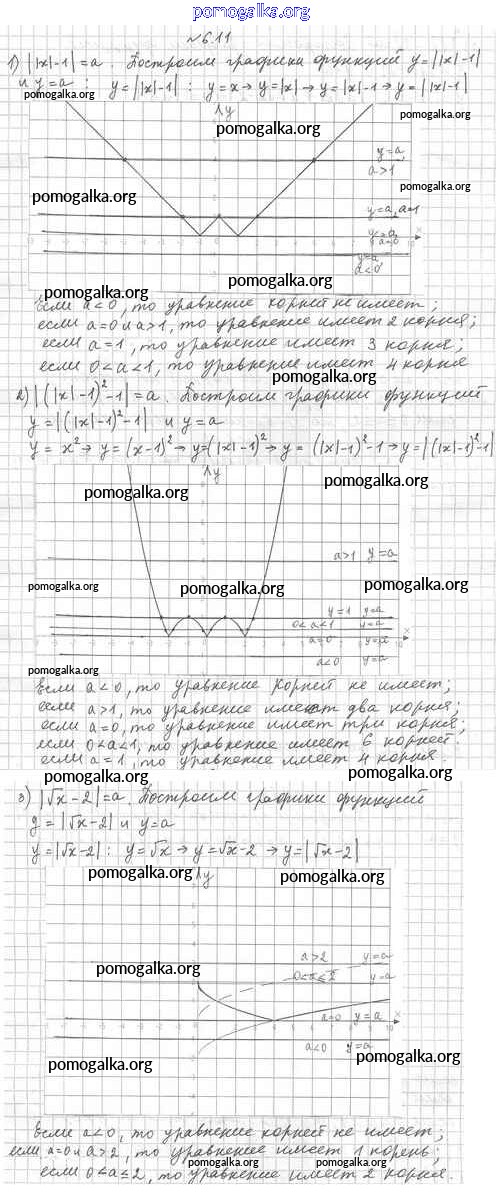 pomogalka.org
№6.11
1) ||x|-1|=a. Построим графики функций y=||x|-1|
и y=a : y=||x|-1| : y=x→y=|x|→y=|x|-1→y=||x|-1|
pomogalka.org
pomogalka.org
y
pomogalka.org
pomogalka.org
y=a,
a>1
pomogalka.org
pomogalka.org
y=a, a=1
y=a,
a=0
x
y=a,
a<0
pomogalka.org
pomogalka.org
Если a<0, то уравнение корней не имеет;
если a=0 и a>1, то уравнение имеет 2 корня;
если a=1, то уравнение имеет 3 корня;
если 0<a<1, то уравнение имеет 4 корня
pomogalka.org
2) |(|x|-1)²-1|=a. Построим графики функций
y=|(|x|-1)²-1| и y=a
y=x²→y=(x-1)²→y=(|x|-1)²→y=(|x|-1)²-1→y=|(|x|-1)²-1|
y
pomogalka.org
pomogalka.org
a>1 y=a
pomogalka.org
pomogalka.org
y=1 y=a
0<a<1 y=a
a=0 y=a
x
a<0 y=a
pomogalka.org
Если a<0, то уравнение корней не имеет;
если a>1, то уравнение имеет два корня;
если a=0, то уравнение имеет три корня;
если 0<a<1, то уравнение имеет 6 корней.
если a=1, то уравнение имеет 4 корня.
pomogalka.org
pomogalka.org
3) |√x-2|=a. Построим графики функций
y=|√x-2| и y=a
y=|√x-2| : y=√x→y=√x-2→y=|√x-2|
pomogalka.org
y
pomogalka.org
a>2 y=a
pomogalka.org
0<a≤2 y=a
a=0 y=a
x
a<0 y=a
pomogalka.org
pomogalka.org
Если a<0, то уравнение корней не имеет;
если a=0 и a>2, то уравнение имеет 1 корень;
если 0<a≤2, то уравнение имеет 2 корня.
pomogalka.org
pomogalka.org